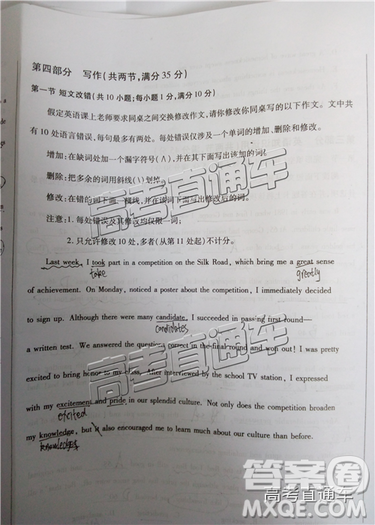 第四部分 写作(共两节,满分35分)
第一节 短文改错(共10小题;每小题1分,满分10分)
假定英语课上老师要求同桌之间交换修改作文,请你修改你同桌写的以下作文。文中共
有10处语言错误,每句最多有两处。每处错误仅涉及一个单词的增加、删除和修改。
增加:在缺词处加一个漏字符号(∧),并在其下面写出该加的词。
删除:把多余的词用斜线(\)划掉。
修改:在错的词下画一横线,并在该词下面写出修改后的词。
注意:1. 每处错误及其修改均仅限一词;
2.只允许修改10处,多者(从第11处起)不计分。
Last week, I took part in a competition on the Silk Road, which bring me a great sense
take greatly
of achievement. On Monday, noticed a poster about the competition, I immediately decided
to sign up. Although there were many candidate, I succeeded in passing first round—
candidates
a written test. We answered the questions correct in the final round and won out! I was pretty
excited to bring honor to my class. After interviewed by the school TV station, I expressed
with my excitement and pride in our splendid culture. Not only does the competition broaden
excited
my knowledge, but is also encouraged me to learn much about our culture than before.
knowledges
高考直通车
高考直通车
高考直通车
答案圈
高考直通车